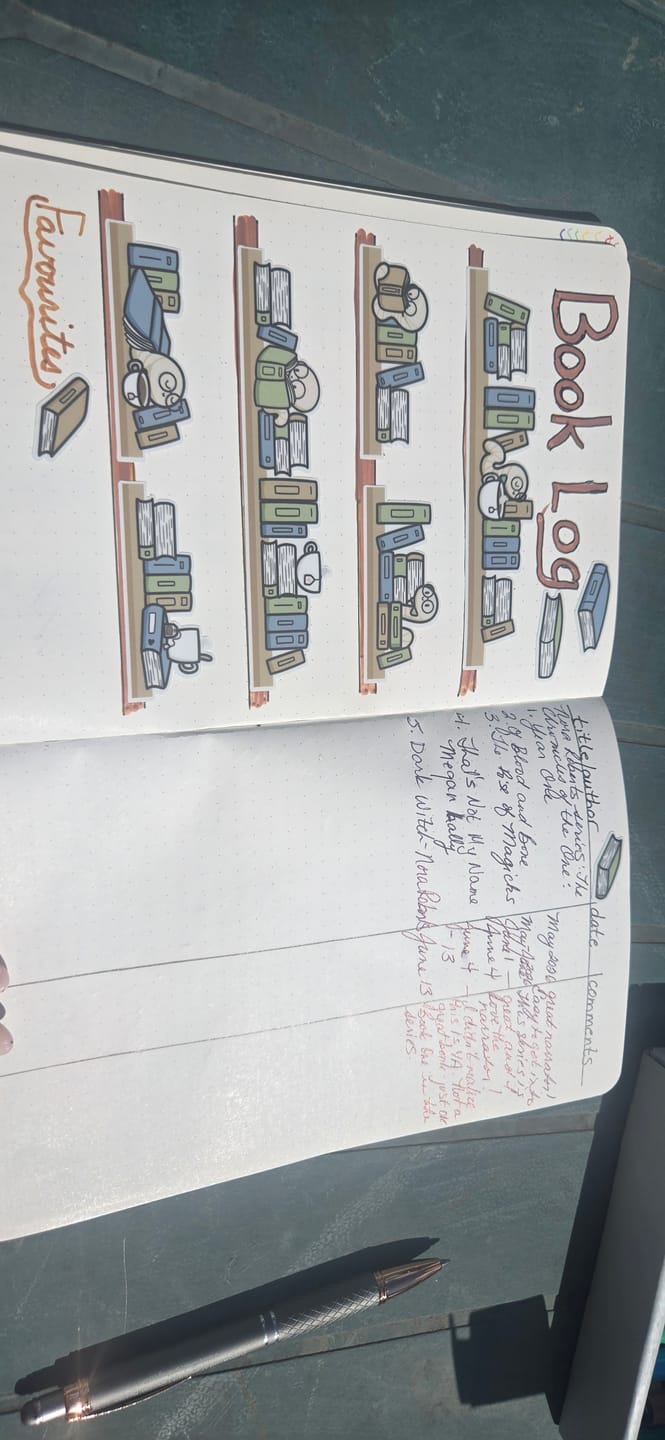 Book Log
Favourites
title/author date comments
Nora Roberts series: The
Chronicles of the One:
1. Year One
2. Of Blood and Bone
3. The Rise of Magicks
4. That's Not My Name
Megan Lally
5. Dark Witch - Nora Roberts
June 4
June 4
- 13
June 13
great narrator!
Easy to get into
this series is
great and I
love the
narrator!
I didn't realize
this is YA. Not a
great book. just ok
Book One in the
series